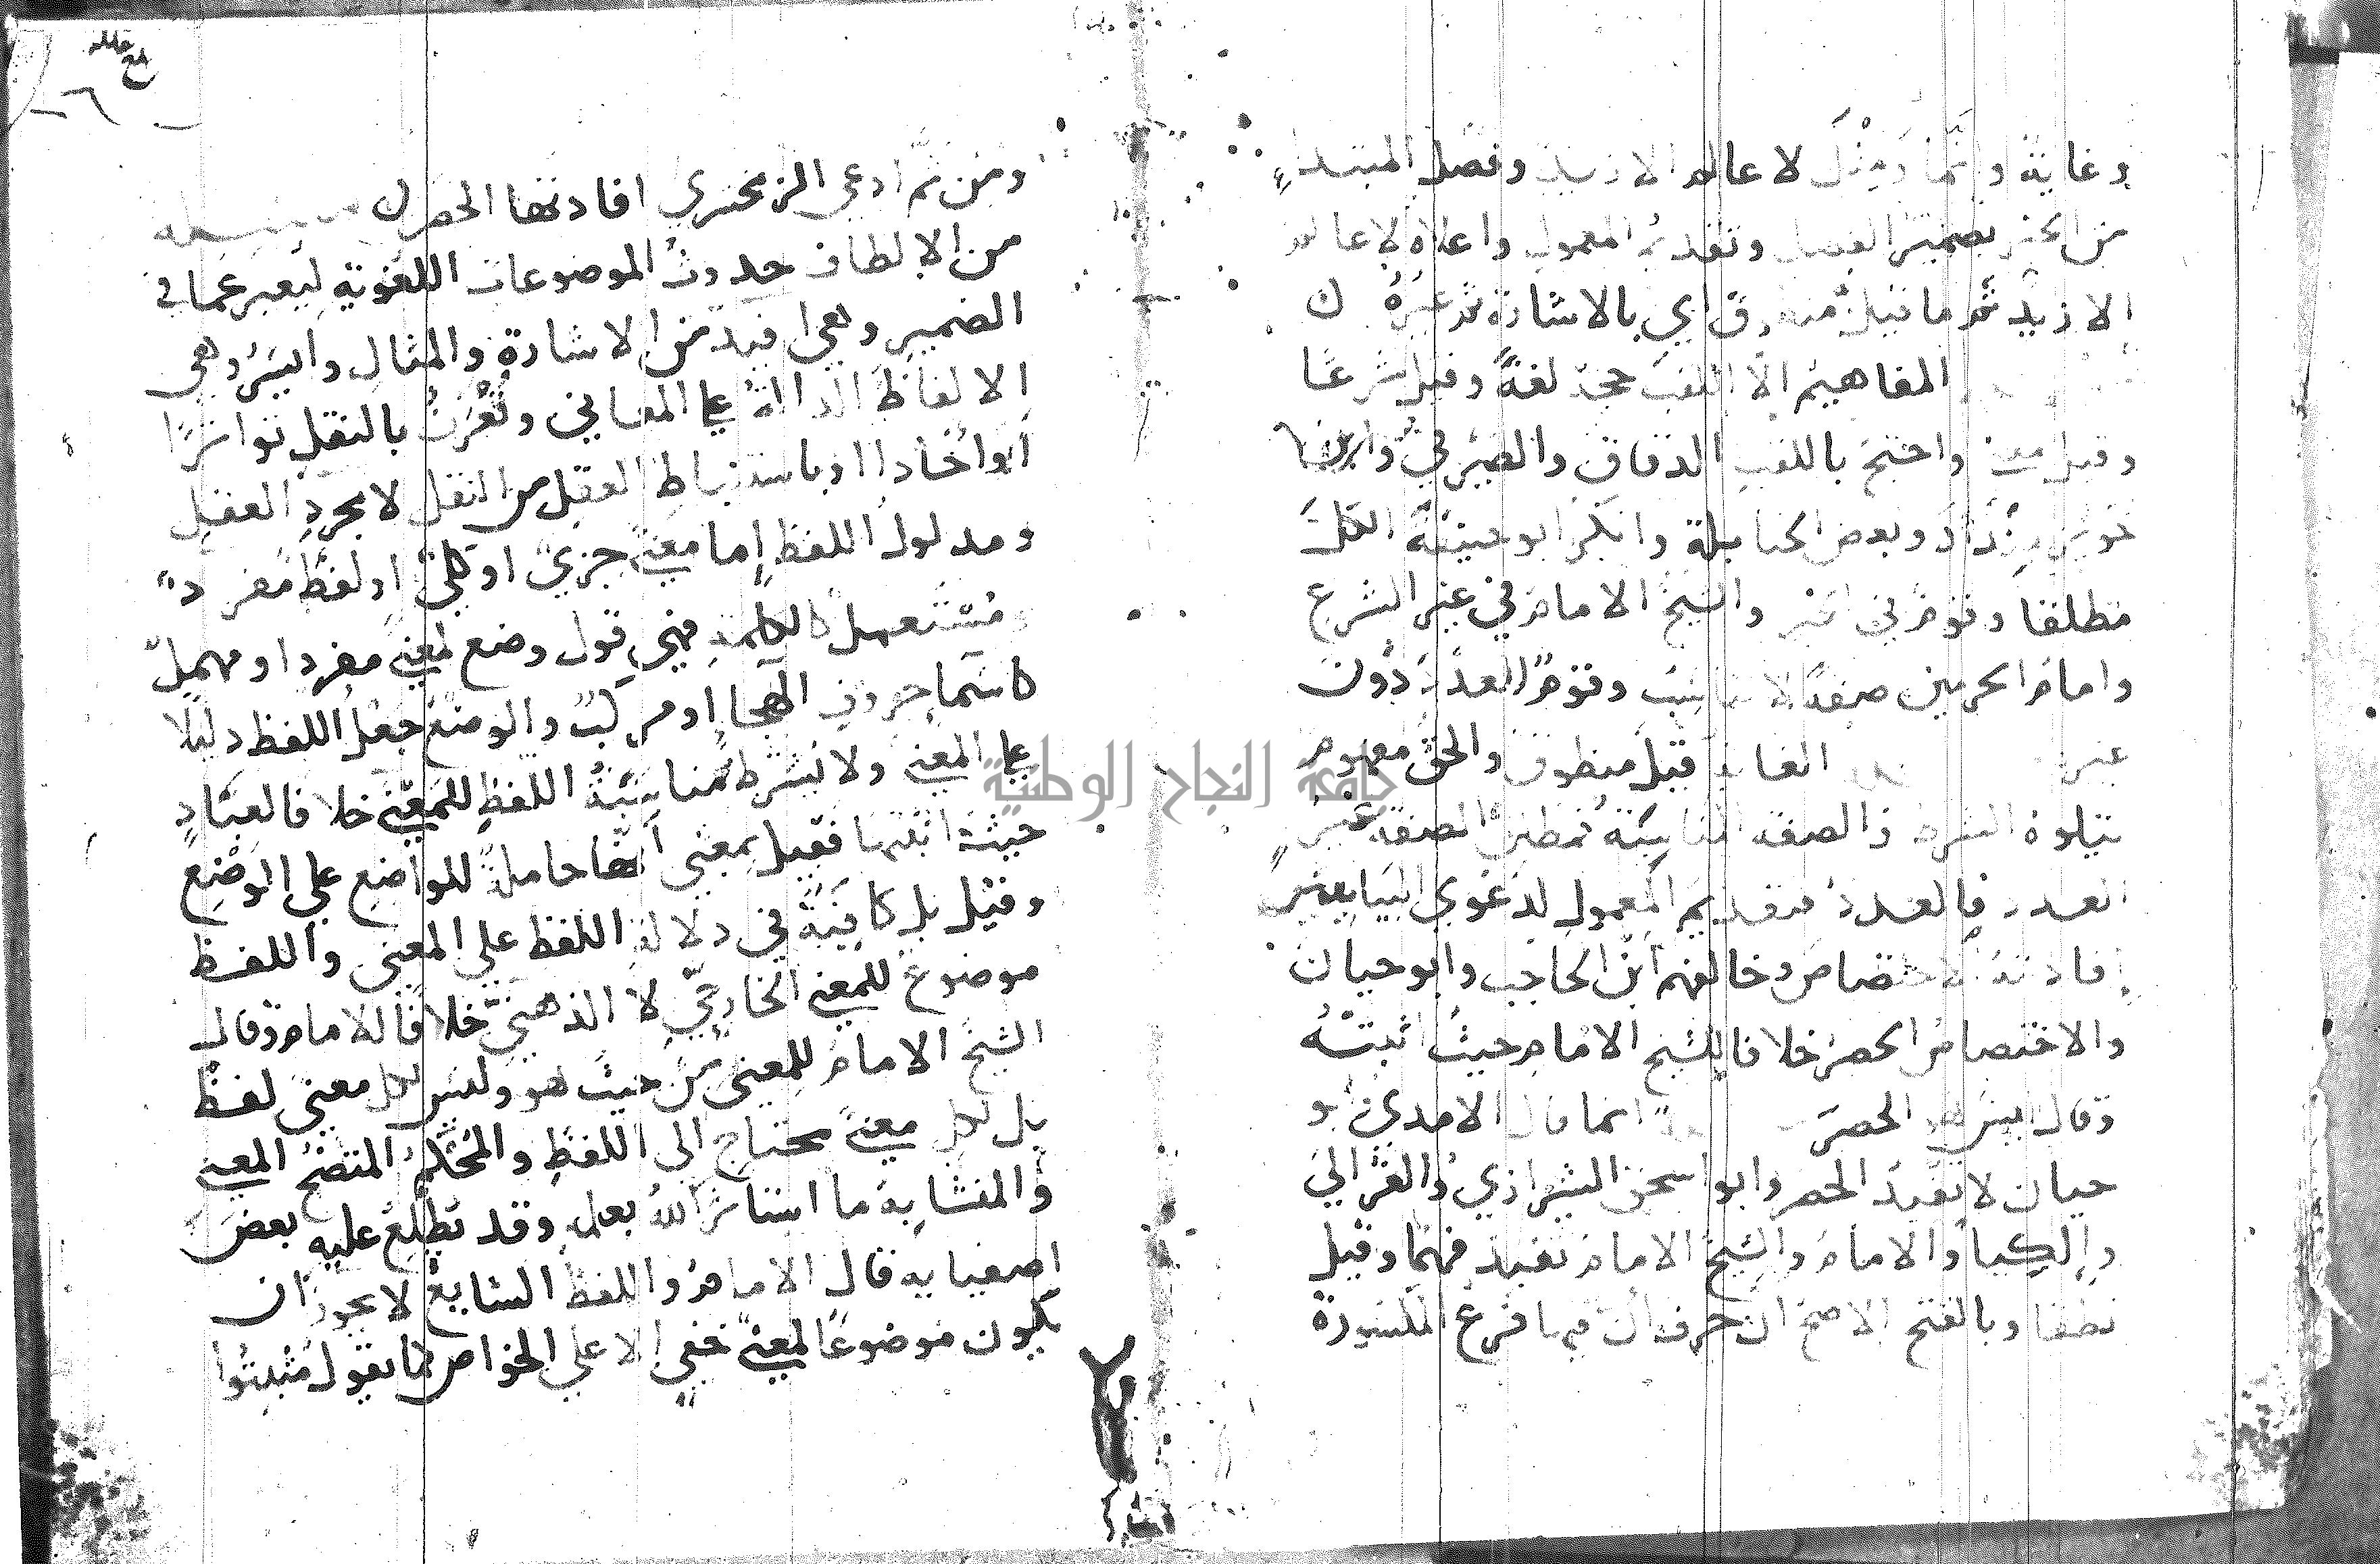 وغاية وانما ومثل لا عالم الا زيد وفصل المبتدا
من الخبر بضمير الفصل وتقديم المعمول واعلاه لا عالم
الا زيد ثم ما قيل منطوق اي بالاشارة ثم غيره
المفاهيم الا اللقب حجة لغة وقيل شرعا
وقيل معنى واحتج باللقب الدقاق والصيرفي وابن
خويز منداد وبعض الحنابلة وانكر ابو حنيفة الكل
مطلقا وقوم في الخبر والشيخ الامام في غير الشرع
وامام الحرمين صفة لا تناسب وقوم العدد دون
غيره الغاية قيل منطوق والحق مفهوم
يتلوه الشرط فالصفة المناسبة فمطلق الصفة غير
العدد فالعدد فتقديم المعمول لدعوى البيانيين
افادته الاختصاص وخالفهم ابن الحاجب وابو حيان
والاختصاص الحصر خلافا للشيخ الامام حيث اثبته
وقال ليس هو الحصر انما قال الامدي وابو
حيان لا تفيد الحصر وابو اسحق الشيرازي والغزالي
والكيا والامام والشيخ الامام تفيد فهما وقيل
نطقا وبالفتح الاصح ان حرف ان فيها فرع المكسورة
ومن ثم ادعى الزمخشري افادتها الحصر
من الالطاف حدوث الموضوعات اللغوية ليعبر عما في
الضمير وهي افيد من الاشارة والمثال وايسر وهي
الالفاظ الدالة على المعاني وتعرف بالنقل تواترا
او احادا او باستنباط العقل من النقل لا مجرد العقل
ومدلول اللفظ إما معنى جزي او كلي او لفظ مفرد
مستعمل كالكلمة فهي قول وضع لمعنى مفرد او مهمل
كاسما حروف الهجا او مركب والوضع جعل اللفظ دليلا
على المعنى ولا يشترط مناسبة اللفظ للمعنى خلافا لعباد
حيث اثبتها فقيل بمعنى انها حاملة للواضع على الوضع
وقيل بل كافية في دلالة اللفظ على المعنى واللفظ
موضوع للمعنى الخارجي لا الذهني خلافا للامام وقال
الشيخ الامام للمعنى من حيث هو وليس لكل معنى لفظ
بل لكل معنى محتاج الى اللفظ والمحكم المتضح المعنى
والمتشابه ما استاثر الله بعلمه وقد يطلع عليه بعض
اصفيايه قال الامام واللفظ الشايع لا يجوز ان
يكون موضوعا لمعنى خفي الا على الخواص كما يقول مثبتوا
جامعة النجاح الوطنية